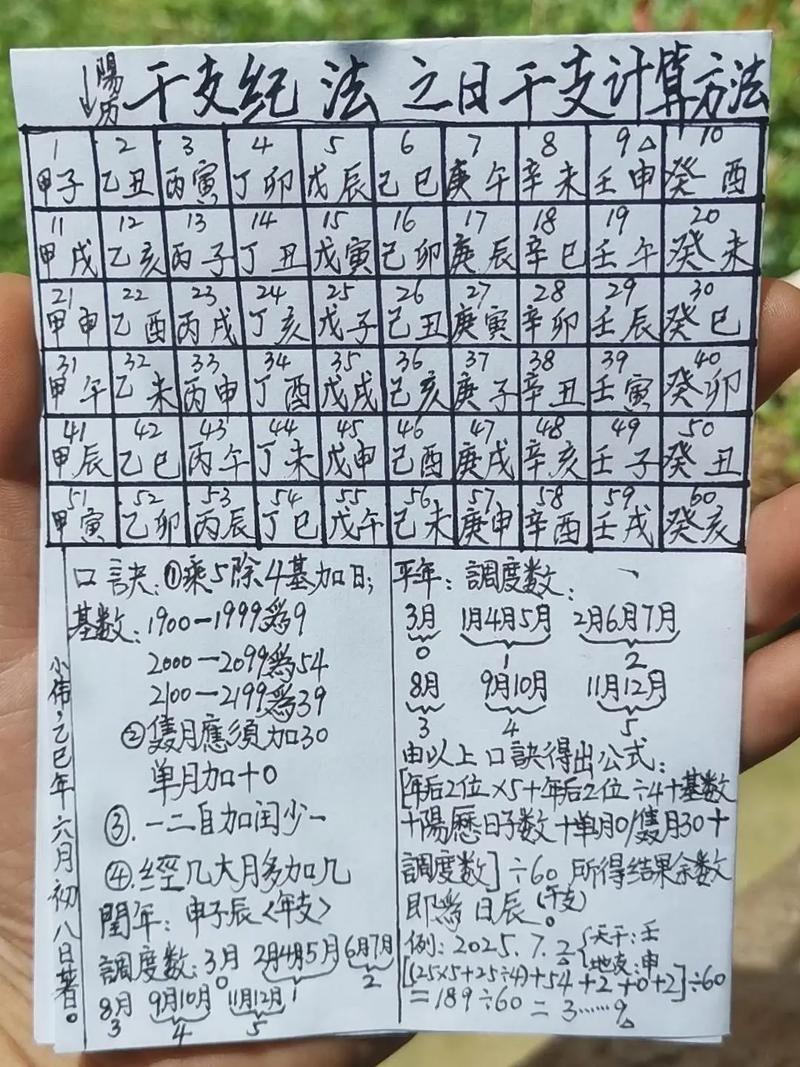 陽历 干支纪法之日干支计算方法
1 2 3 4 5 6 7 8 9△ 10
甲子 乙丑 丙寅 丁卯 戊辰 己巳 庚午 辛未 壬申 癸酉
11 12 13 14 15 16 17 18 19 20
甲戌 乙亥 丙子 丁丑 戊寅 己卯 庚辰 辛巳 壬午 癸未
21 22 23 24 25 26 27 28 29 30
甲申 乙酉 丙戌 丁亥 戊子 己丑 庚寅 辛卯 壬辰 癸巳
31 32 33 34 35 36 37 38 39 40
甲午 乙未 丙申 丁酉 戊戌 己亥 庚子 辛丑 壬寅 癸卯
41 42 43 44 45 46 47 48 49 50
甲辰 乙巳 丙午 丁未 戊申 己酉 庚戌 辛亥 壬子 癸丑
51 52 53 54 55 56 57 58 59 60
甲寅 乙卯 丙辰 丁巳 戊午 己未 庚申 辛酉 壬戌 癸亥
口訣:①乘5除4基加日;
基数:1900一1999爲9
2000一2099爲54
2100一2199爲39
②隻月應須加30
单月加十0
③.一二自加闰少一
④.經几大月多加几
閏年:申子辰<年支>
調度数:3月 2月4月5月 6月7月
0 1 2
8月 9月10月 11月12月
3 4 5
小伟,乙巳年六月初八日著。
平年:調度数:
3月 1月4月5月 2月6月7月
0 1 2
8月 9月10月 11月12月
3 4 5
由以上口訣得出公式:
[年后2位×5+年后2位÷4+基数
+陽歷日子数+单月0/隻月30+
調度数]÷60 所得结果余数
即爲日辰(干支)。
例:2025.7.2{天干:壬
地支:申
[(25×5+25÷4)+54+2+0+2]÷60
=189÷60=3……9△